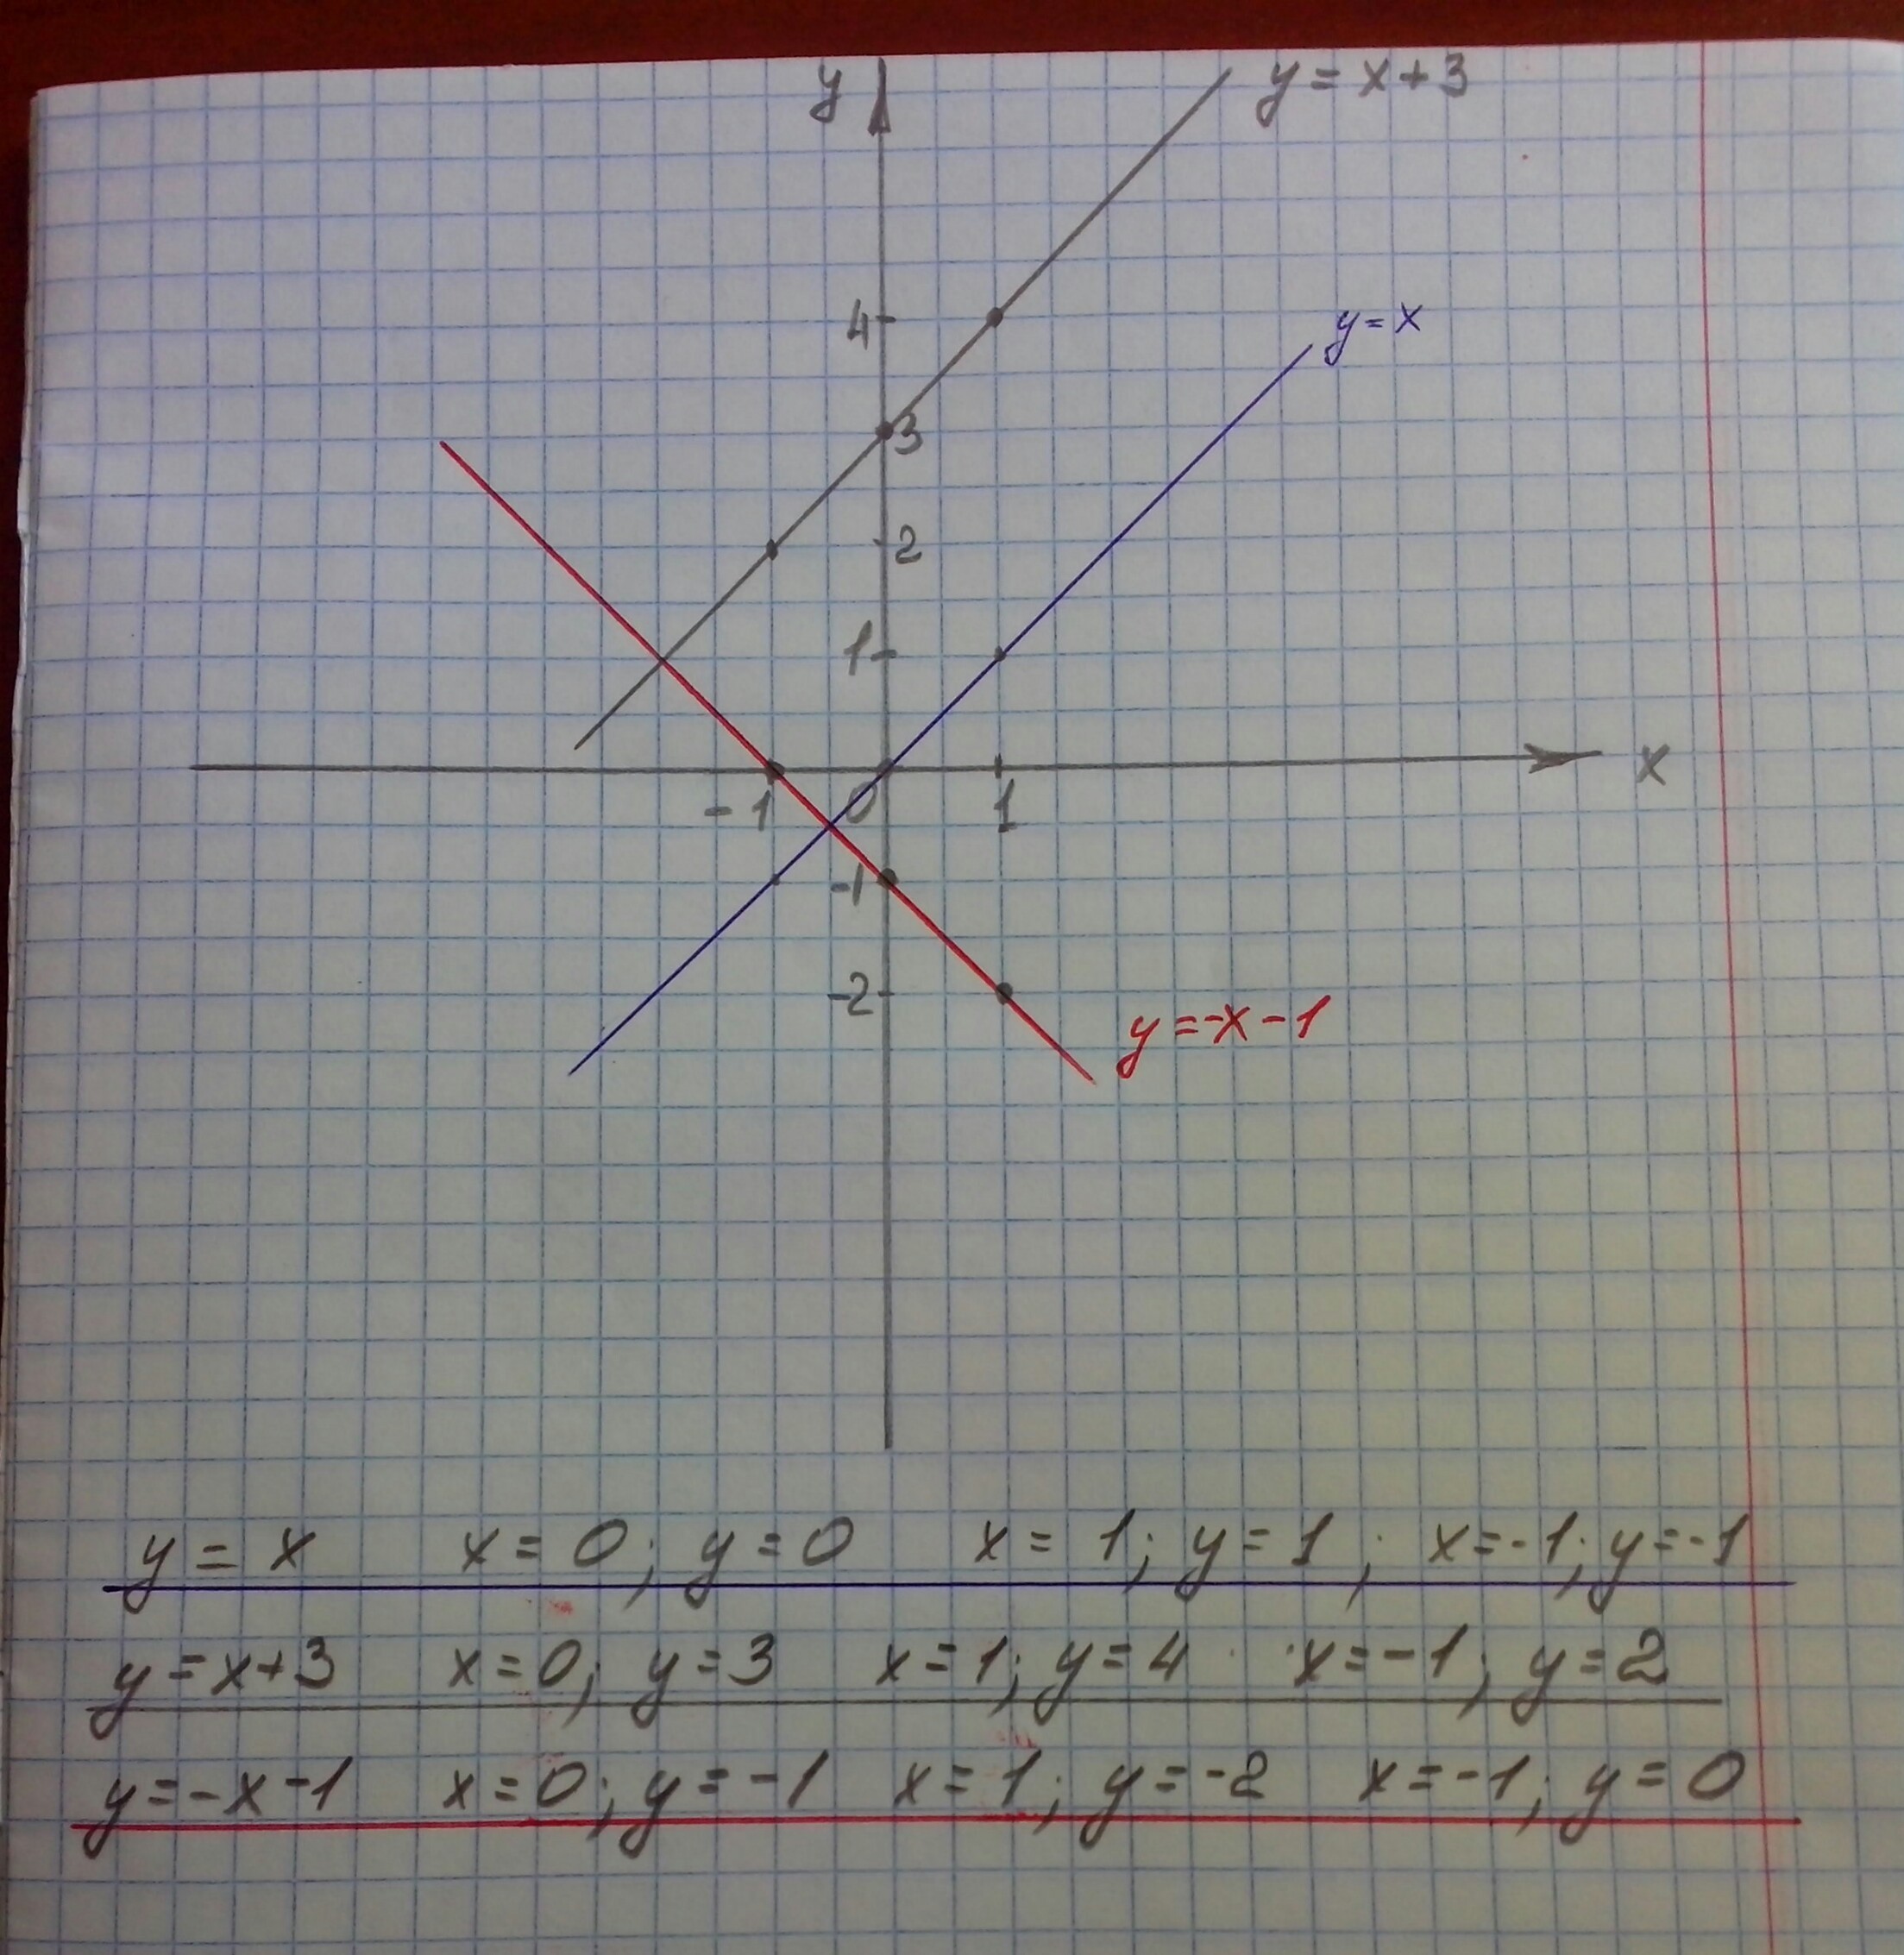 y
y = x + 3
4
y = x
3
2
1
x
-1 0 1
-1
-2
y = -x - 1
y = x x = 0; y = 0 x = 1; y = 1; x = -1; y = -1
y = x + 3 x = 0; y = 3 x = 1; y = 4 x = -1; y = 2
y = -x - 1 x = 0; y = -1 x = 1; y = -2 x = -1; y = 0